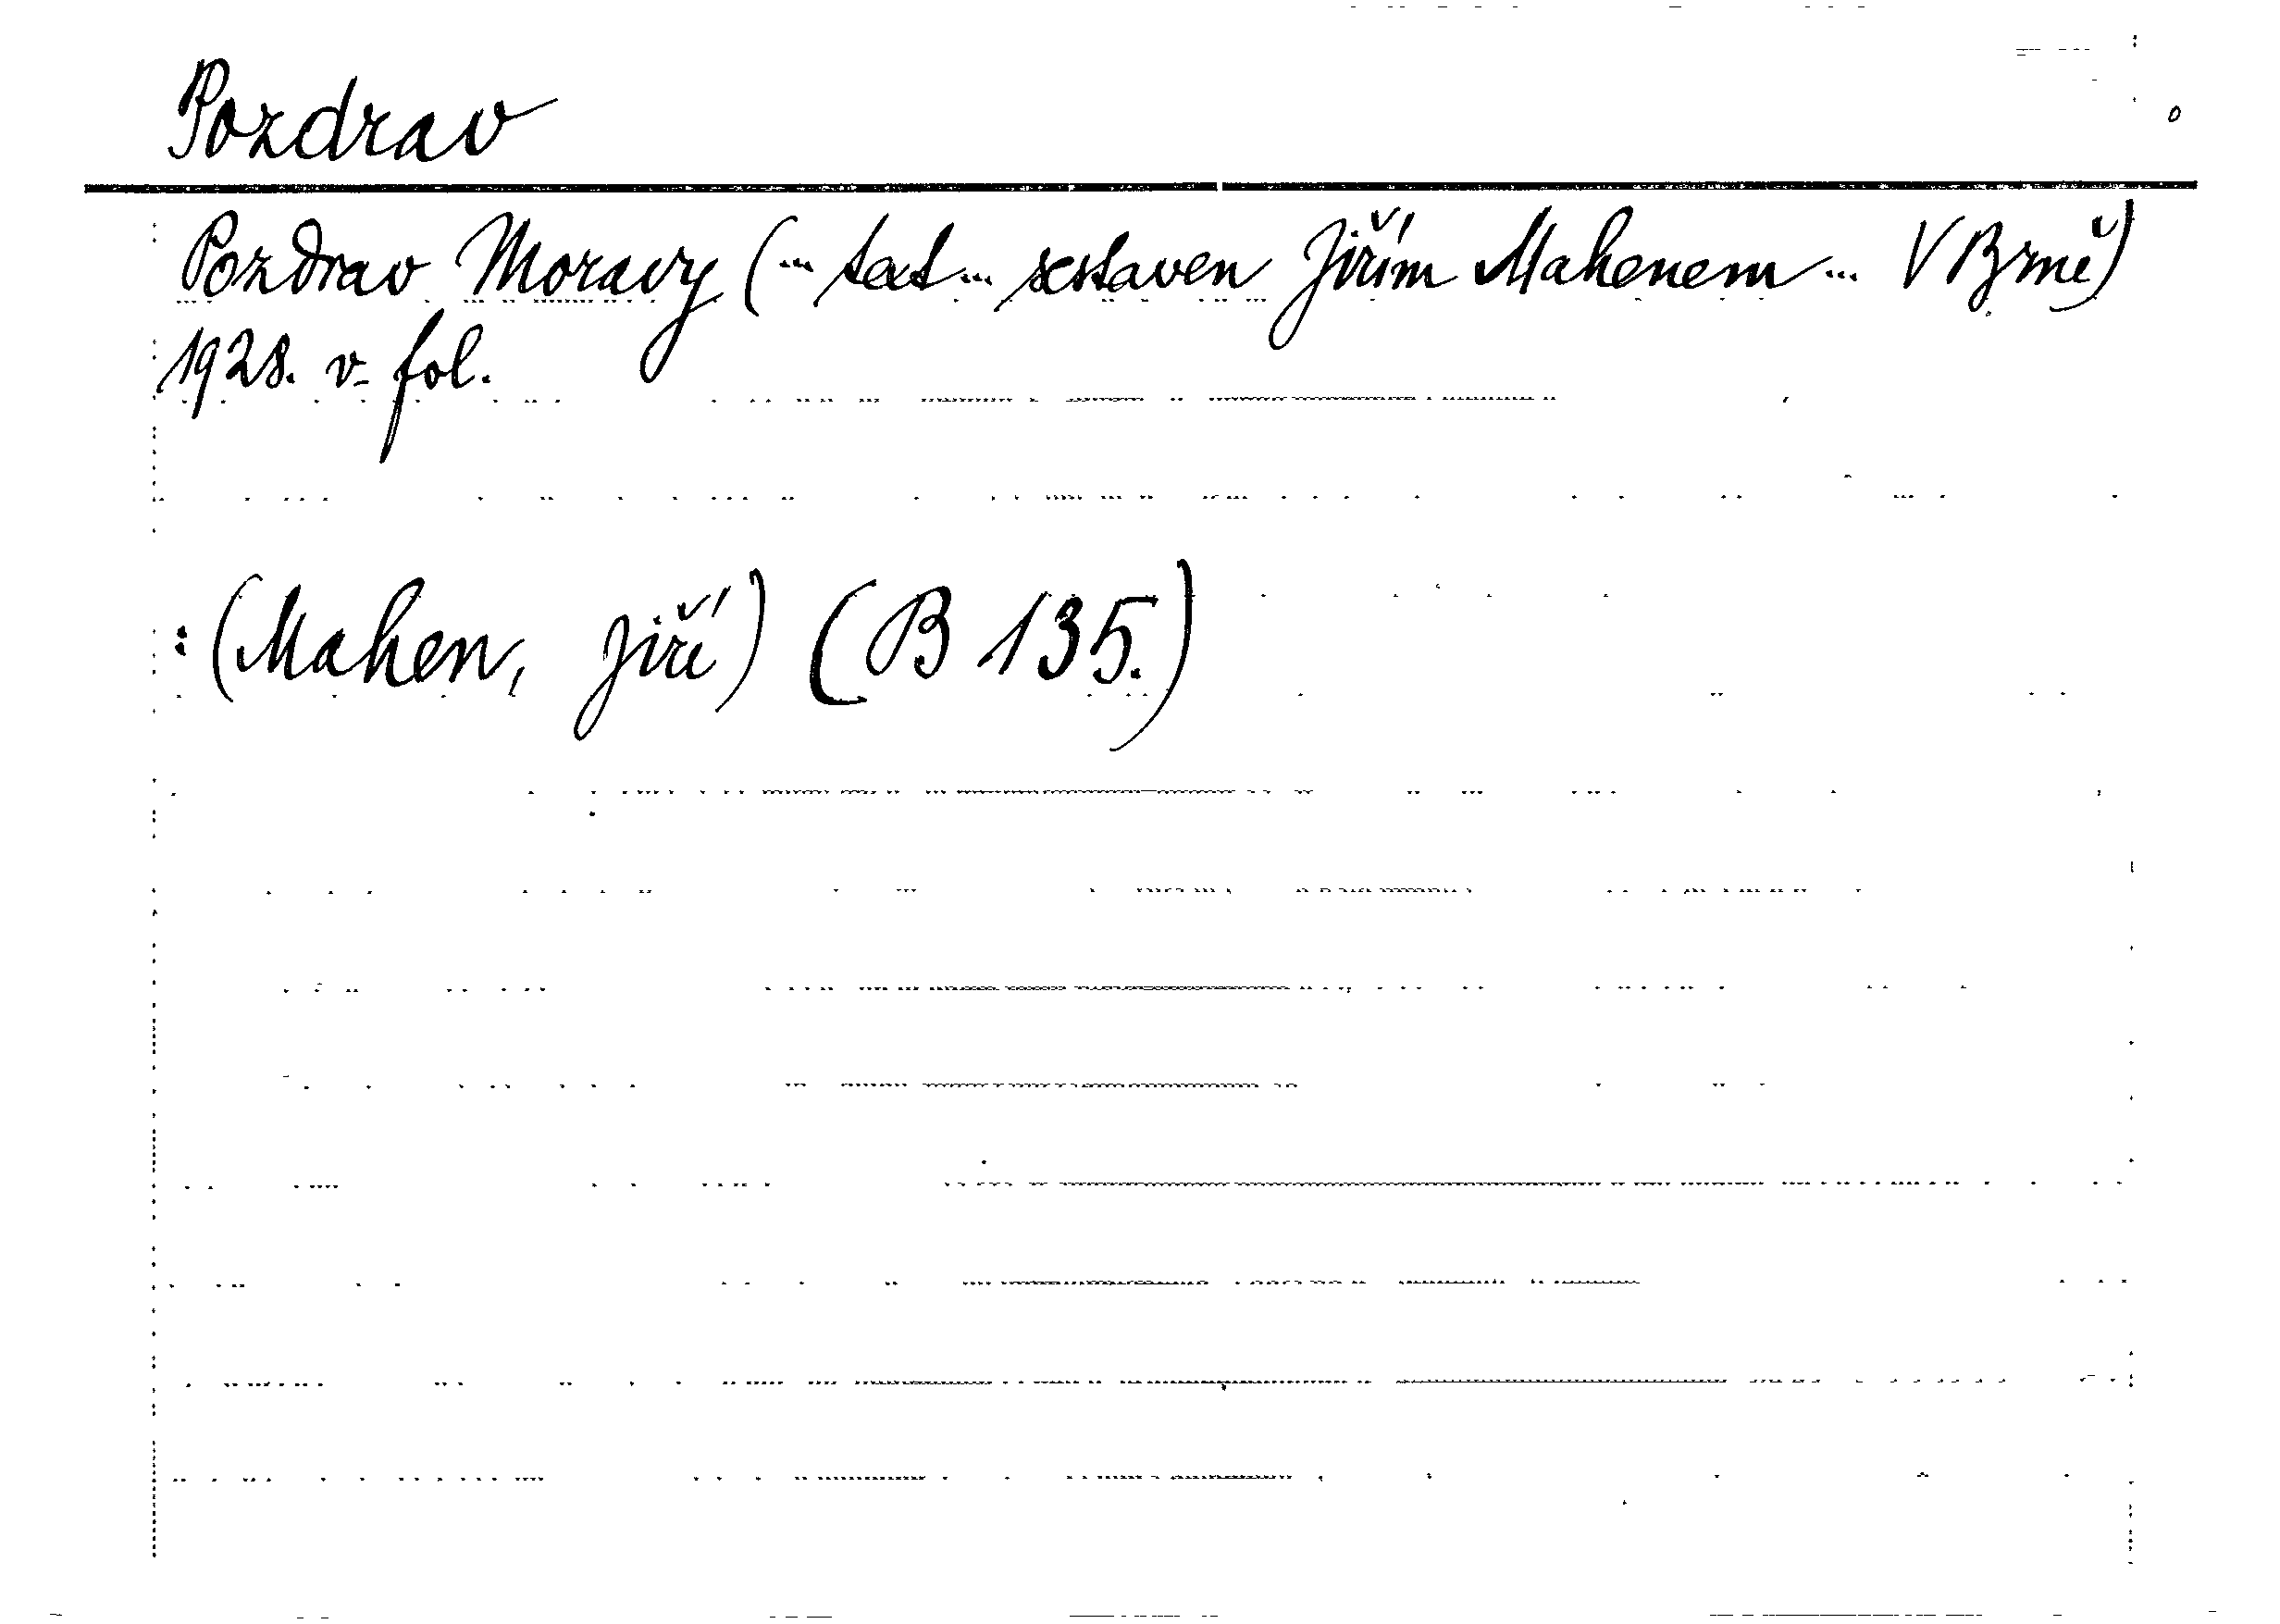 Pozdrav
Pozdrav Moravy (... text ... sestaven Jiřím Mahenem ... V Brně)
1928. v. fol.
: (Mahen, Jiří) (B 135.)